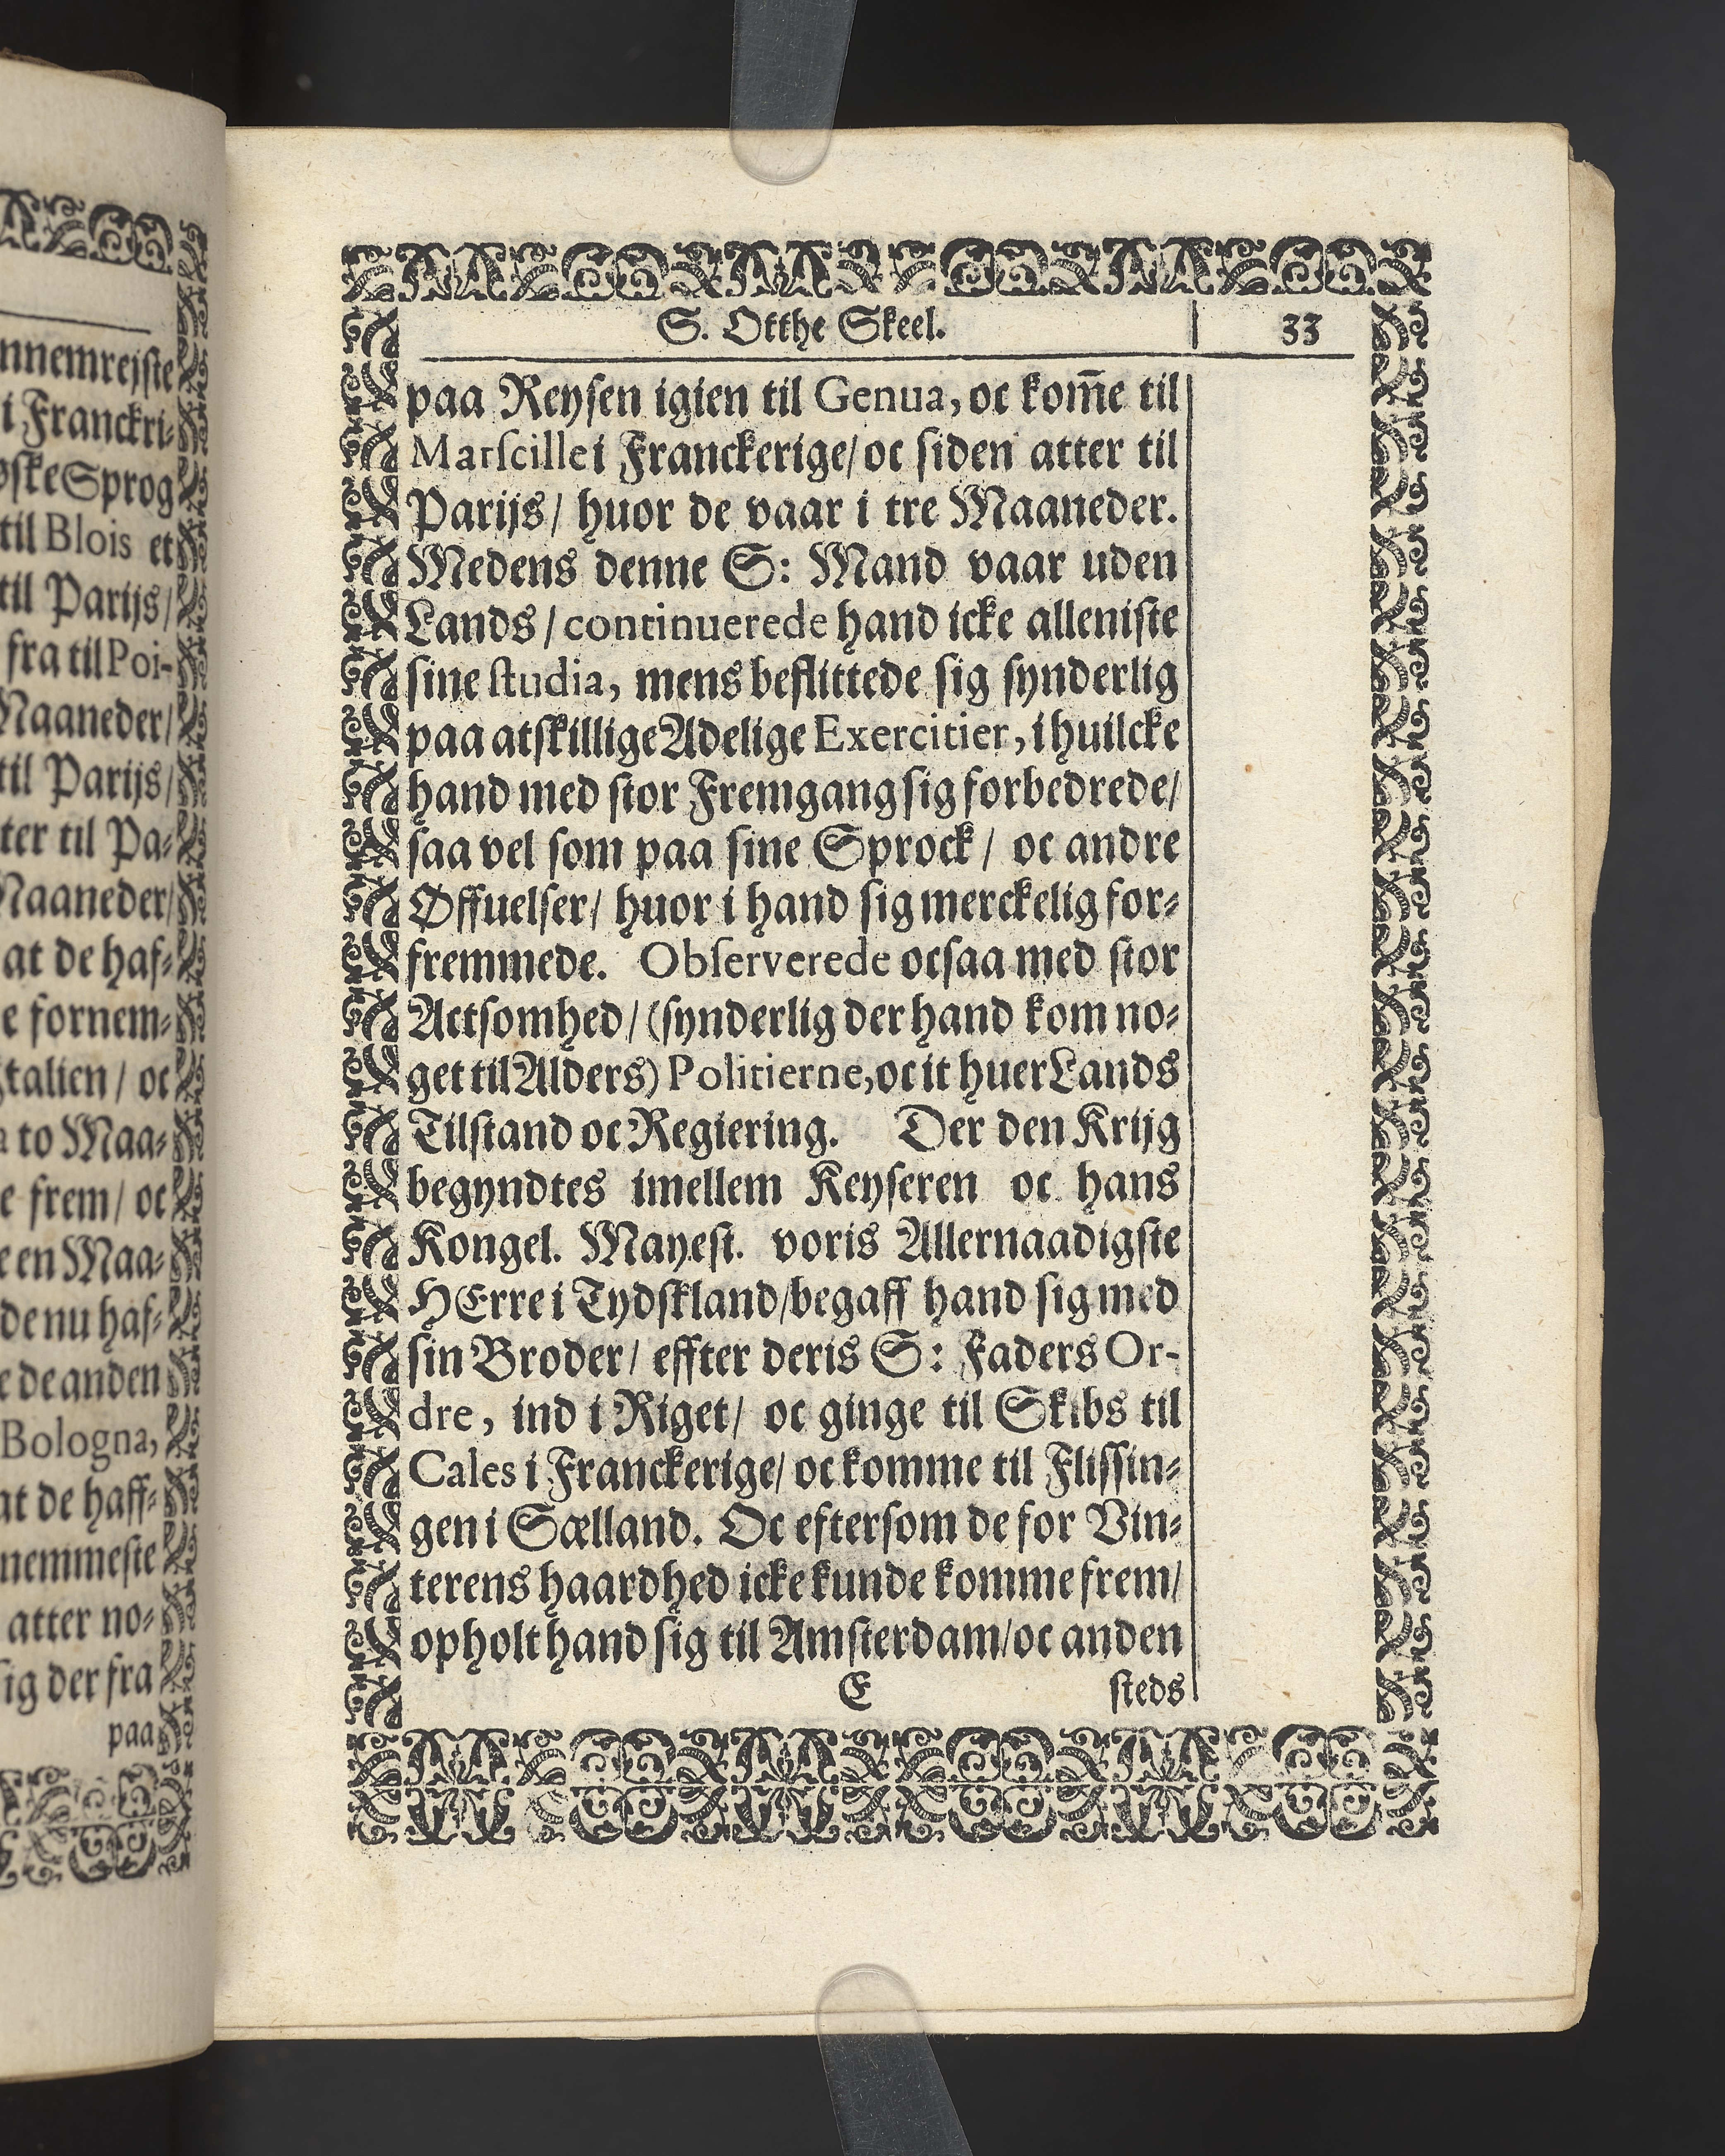 nnemrejste
i Franckri-
ske Sprog
til Blois et
til Parijs/
fra til Poi-
Maaneder/
til Parijs/
ter til Pa-
Maaneder/
at de haf-
e fornem-
Italien / oc
to Maa-
e frem/ oc
e en Maa-
de nu haf-
e de anden
Bologna,
at de haff-
nemmeste
atter no-
sig der fra
paa
S. Otthe Skeel. 33
paa Reysen igien til Genua, oc kom̄e til
Marſcille i Franckerige/ oc siden atter til
Parijs/ huor de vaar i tre Maaneder.
Medens denne S: Mand vaar uden
Lands/ continuerede hand icke alleniſte
ſine ſtudia, mens beflittede ſig ſynderlig
paa atſkillige Adelige Exercitier, i huilcke
hand med ſtor Fremgang ſig forbedrede/
ſaa vel ſom paa ſine Sprock/ oc andre
Øffuelſer/ huor i hand ſig merckelig for-
fremmede. Obſerverede ocſaa med ſtor
Actſomhed/ (ſynderlig der hand kom no-
get til Alders) Politierne, oc it huer Lands
Tilſtand oc Regiering. Der den Krijg
begyndtes imellem Keyſeren oc hans
Kongel. Mayeſt. voris Allernaadigſte
HErre i Tydſkland/ begaff hand ſig med
ſin Broder/ effter deris S: Faders Or-
dre, ind i Riget/ oc ginge til Skibs til
Cales i Franckerige/ oc komme til Fliſſin-
gen i Sælland. Oc efterſom de for Vin-
terens haardhed icke kunde komme frem/
opholt hand ſig til Amſterdam/ oc anden
E ſteds